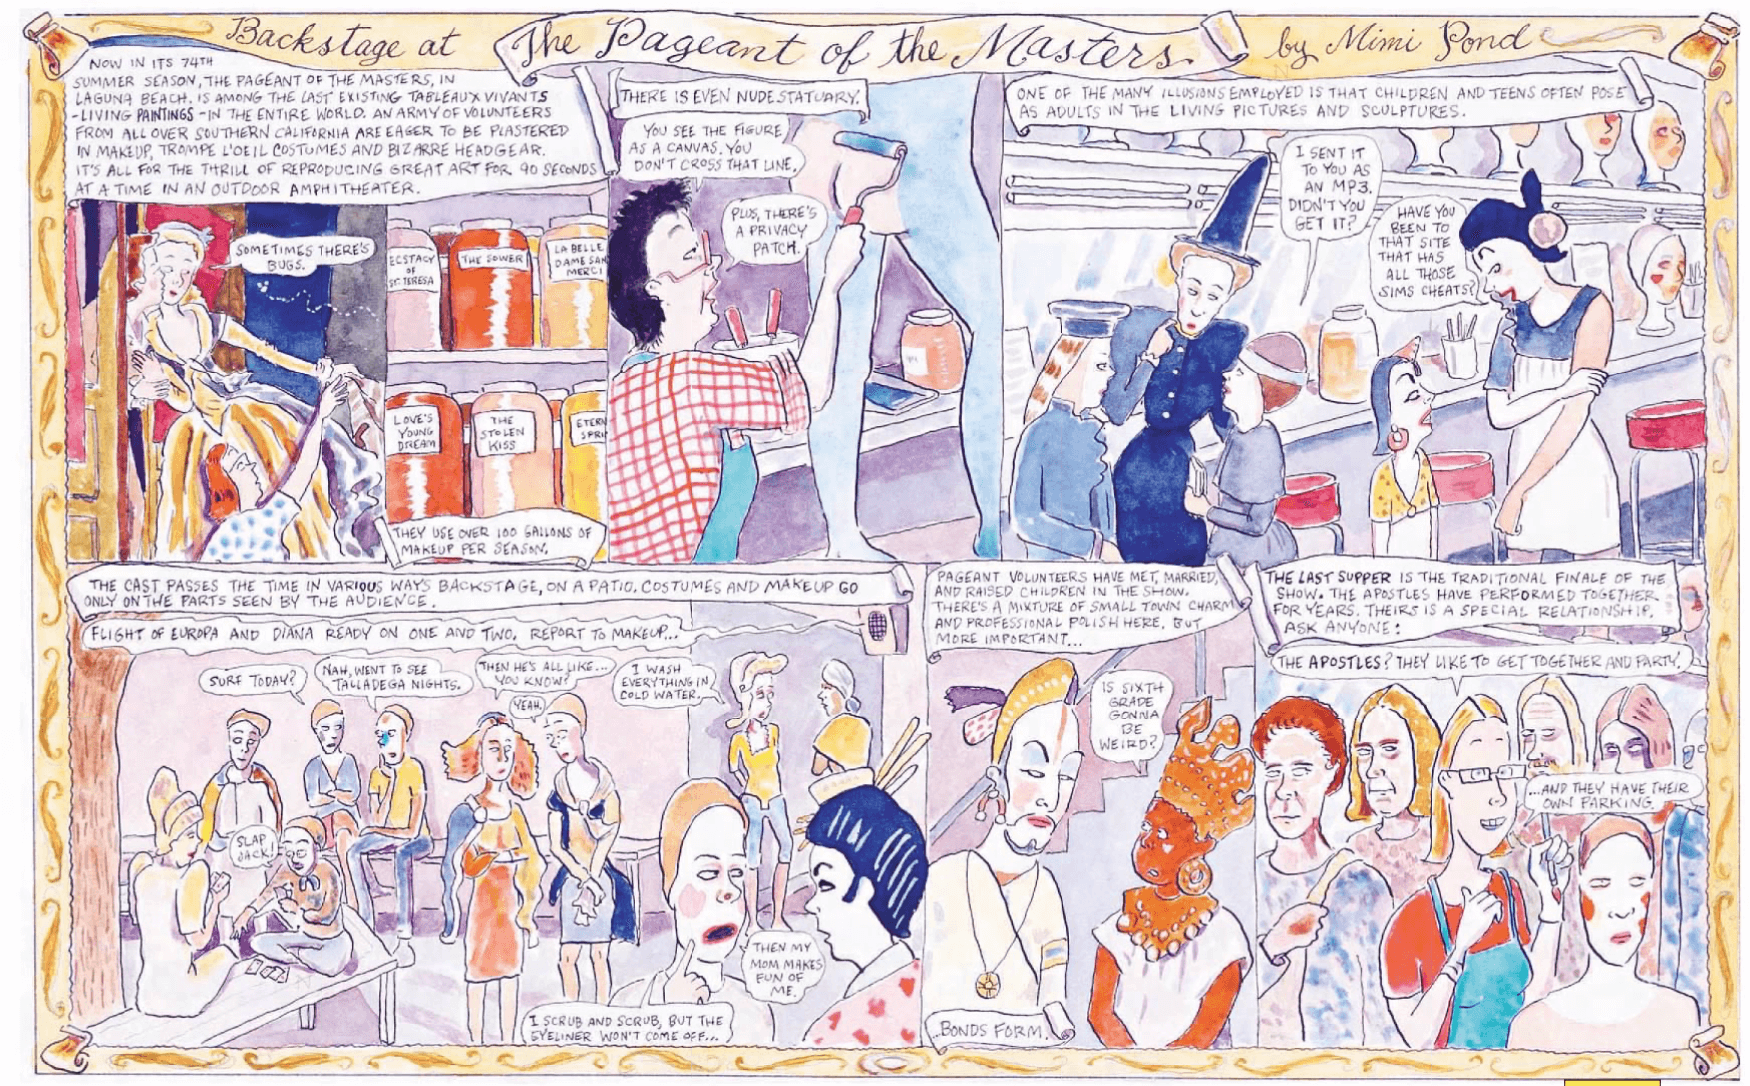 Backstage at The Pageant of the Masters by Mimi Pond
NOW IN ITS 74TH
SUMMER SEASON, THE PAGEANT OF THE MASTERS, IN
LAGUNA BEACH. IS AMONG THE LAST EXISTING TABLEAUX VIVANTS
-LIVING PAINTINGS-IN THE ENTIRE WORLD. AN ARMY OF VOLUNTEERS
FROM ALL OVER SOUTHERN CALIFORNIA ARE EAGER TO BE PLASTERED
IN MAKEUP, TROMPE L'OEIL COSTUMES AND BIZARRE HEADGEAR.
IT'S ALL FOR THE THRILL OF REPRODUCING GREAT ART FOR 90 SECONDS
AT A TIME IN AN OUTDOOR AMPHITHEATER.
SOMETIMES THERE'S
BUGS.
ECSTACY
OF
ST. TERESA
THE SOWER
LA BELLE
DAME SAN
MERCI
LOVE'S
YOUNG
DREAM
THE
STOLEN
KISS
ETERN
SPRI
THEY USE OVER 100 GALLONS OF
MAKEUP PER SEASON.
THERE IS EVEN NUDE STATUARY.
YOU SEE THE FIGURE
AS A CANVAS. YOU
DON'T CROSS THAT LINE.
PLUS, THERE'S
A PRIVACY
PATCH.
ONE OF THE MANY ILLUSIONS EMPLOYED IS THAT CHILDREN AND TEENS OFTEN POSE
AS ADULTS IN THE LIVING PICTURES AND SCULPTURES.
I SENT IT
TO YOU AS
AN MP3.
DIDN'T YOU
GET IT?
HAVE YOU
BEEN TO
THAT SITE
THAT HAS
ALL THOSE
SIMS CHEATS?
THE CAST PASSES THE TIME IN VARIOUS WAYS BACKSTAGE, ON A PATIO. COSTUMES AND MAKEUP GO
ONLY ON THE PARTS SEEN BY THE AUDIENCE.
FLIGHT OF EUROPA AND DIANA READY ON ONE AND TWO. REPORT TO MAKEUP...
SURF TODAY?
NAH, WENT TO SEE
TALLADEGA NIGHTS.
THEN HE'S ALL LIKE...
YOU KNOW?
YEAH.
I WASH
EVERYTHING IN
COLD WATER.
SLAP
JACK!
THEN MY
MOM MAKES
FUN OF
ME.
I SCRUB AND SCRUB, BUT THE
EYELINER WON'T COME OFF...
PAGEANT VOLUNTEERS HAVE MET, MARRIED,
AND RAISED CHILDREN IN THE SHOW.
THERE'S A MIXTURE OF SMALL TOWN CHARM
AND PROFESSIONAL POLISH HERE, BUT
MORE IMPORTANT...
IS SIXTH
GRADE
GONNA
BE
WEIRD?
..BONDS FORM.
THE LAST SUPPER IS THE TRADITIONAL FINALE OF THE
SHOW. THE APOSTLES HAVE PERFORMED TOGETHER
FOR YEARS. THEIRS IS A SPECIAL RELATIONSHIP.
ASK ANYONE:
THE APOSTLES? THEY LIKE TO GET TOGETHER AND PARTY.
...AND THEY HAVE THEIR
OWN PARKING.